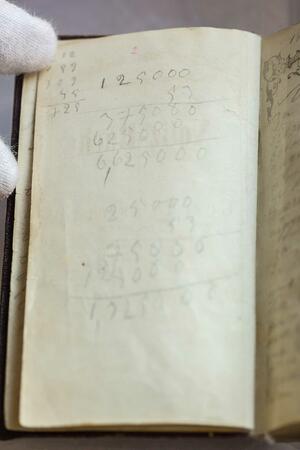 2
725
125000
53
375000
625000
6,625000
25000
53
75000
125000
1,325000